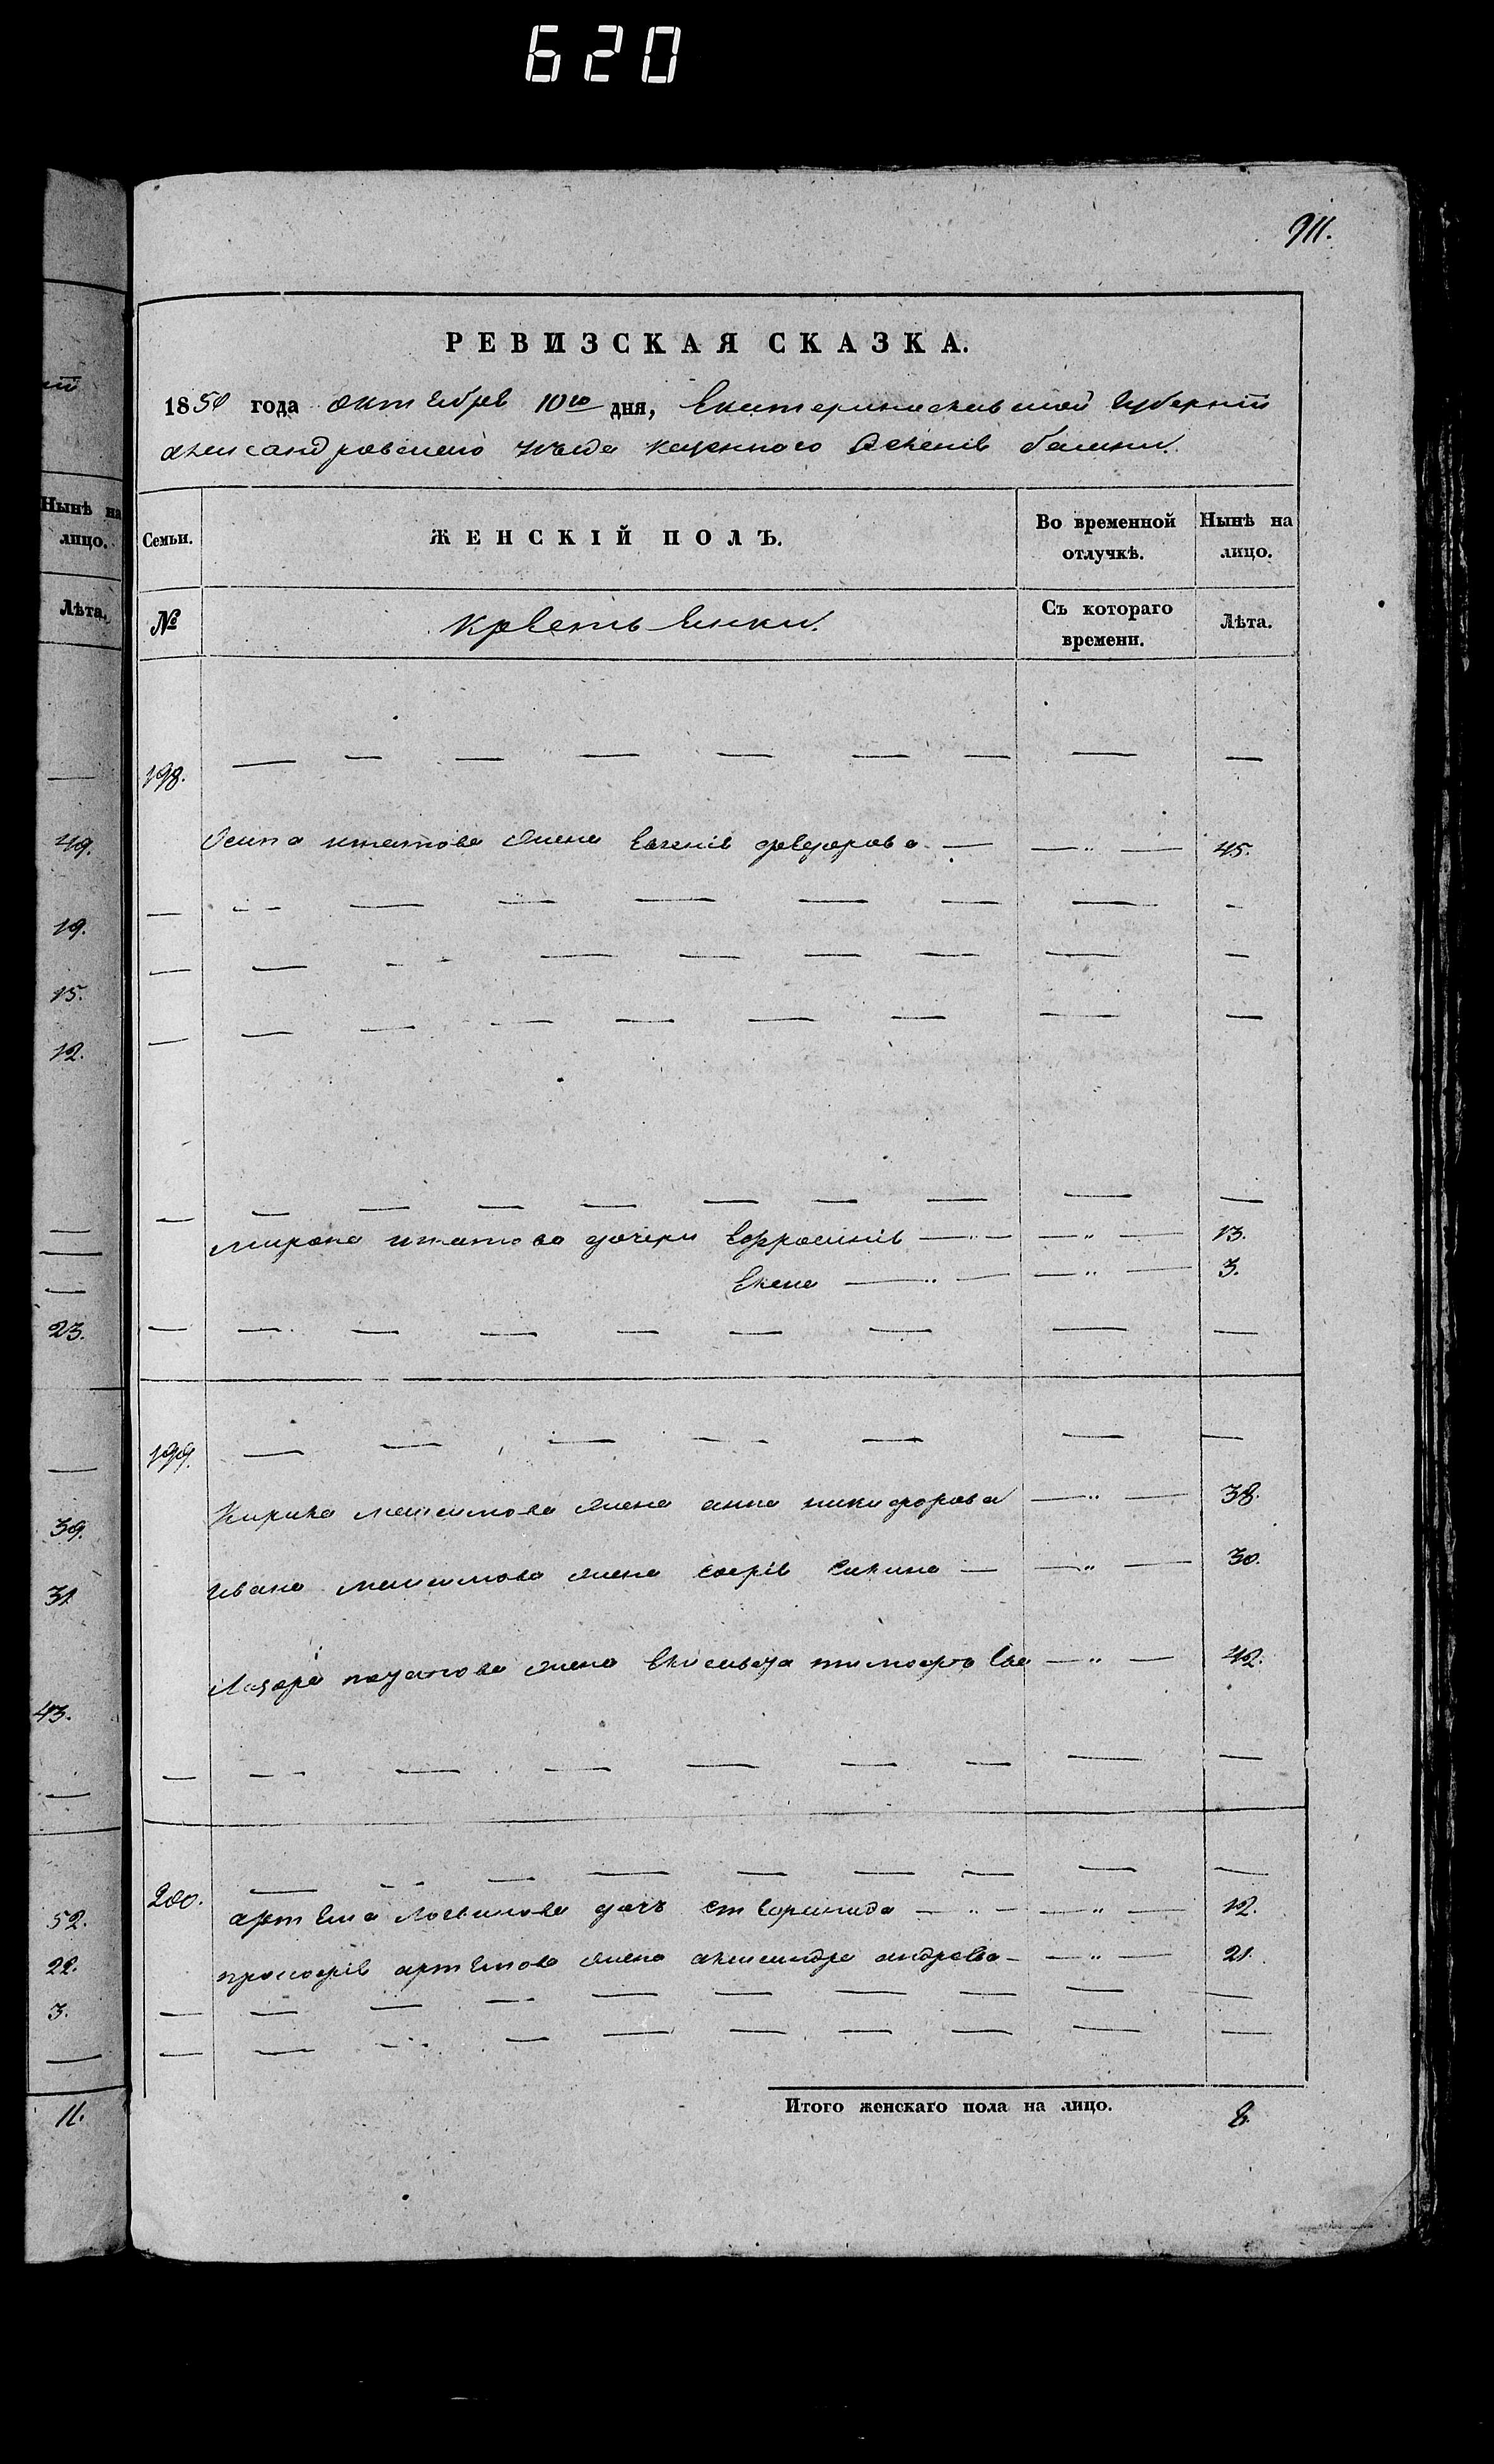 620
911.
РЕВИЗСКАЯ СКАЗКА.
1850 года октября 10го дня, Екатеринославской Губерніи
александровскаго уезда казенного Селенія балки.
Нынѣ на лицо.
Лѣта.
49.
19.
15.
12.
23.
39.
31.
43.
52.
22.
3.
11.
Семьи. ЖЕНСКІЙ ПОЛЪ. Во временной отлучкѣ. Нынѣ на лицо.
№ Крестьянки. Съ котораго времени. Лѣта.
198. — — — — — — — — —
Осипа игнатова жена Евгенія федорова — — „ — 45.
— — — — — — — — —
— — — — — — — — —
— — — — — — — — —
— — — — — — — — —
Мирона игнатова дочери Ефросинія — „ — — „ — 13.
Елена — „ — — „ — 3.
— — — — — — — — —
199. — — — — — — —
Кирила максимова жена анна никифорова — „ — 38.
Ивана максимова жена софія — — „ — 30.
Лазаря жена Елисавета тимофеева — „ — 42.
— — — — — — — — —
200. — — — — — — — — —
артема логвинова дочь — „ — — „ — 12.
прокофія артемова жена александра андреева — — „ — 21.
— — — — — — — — — —
— — — — — — — — — —
Итого женскаго пола на лицо. 8.